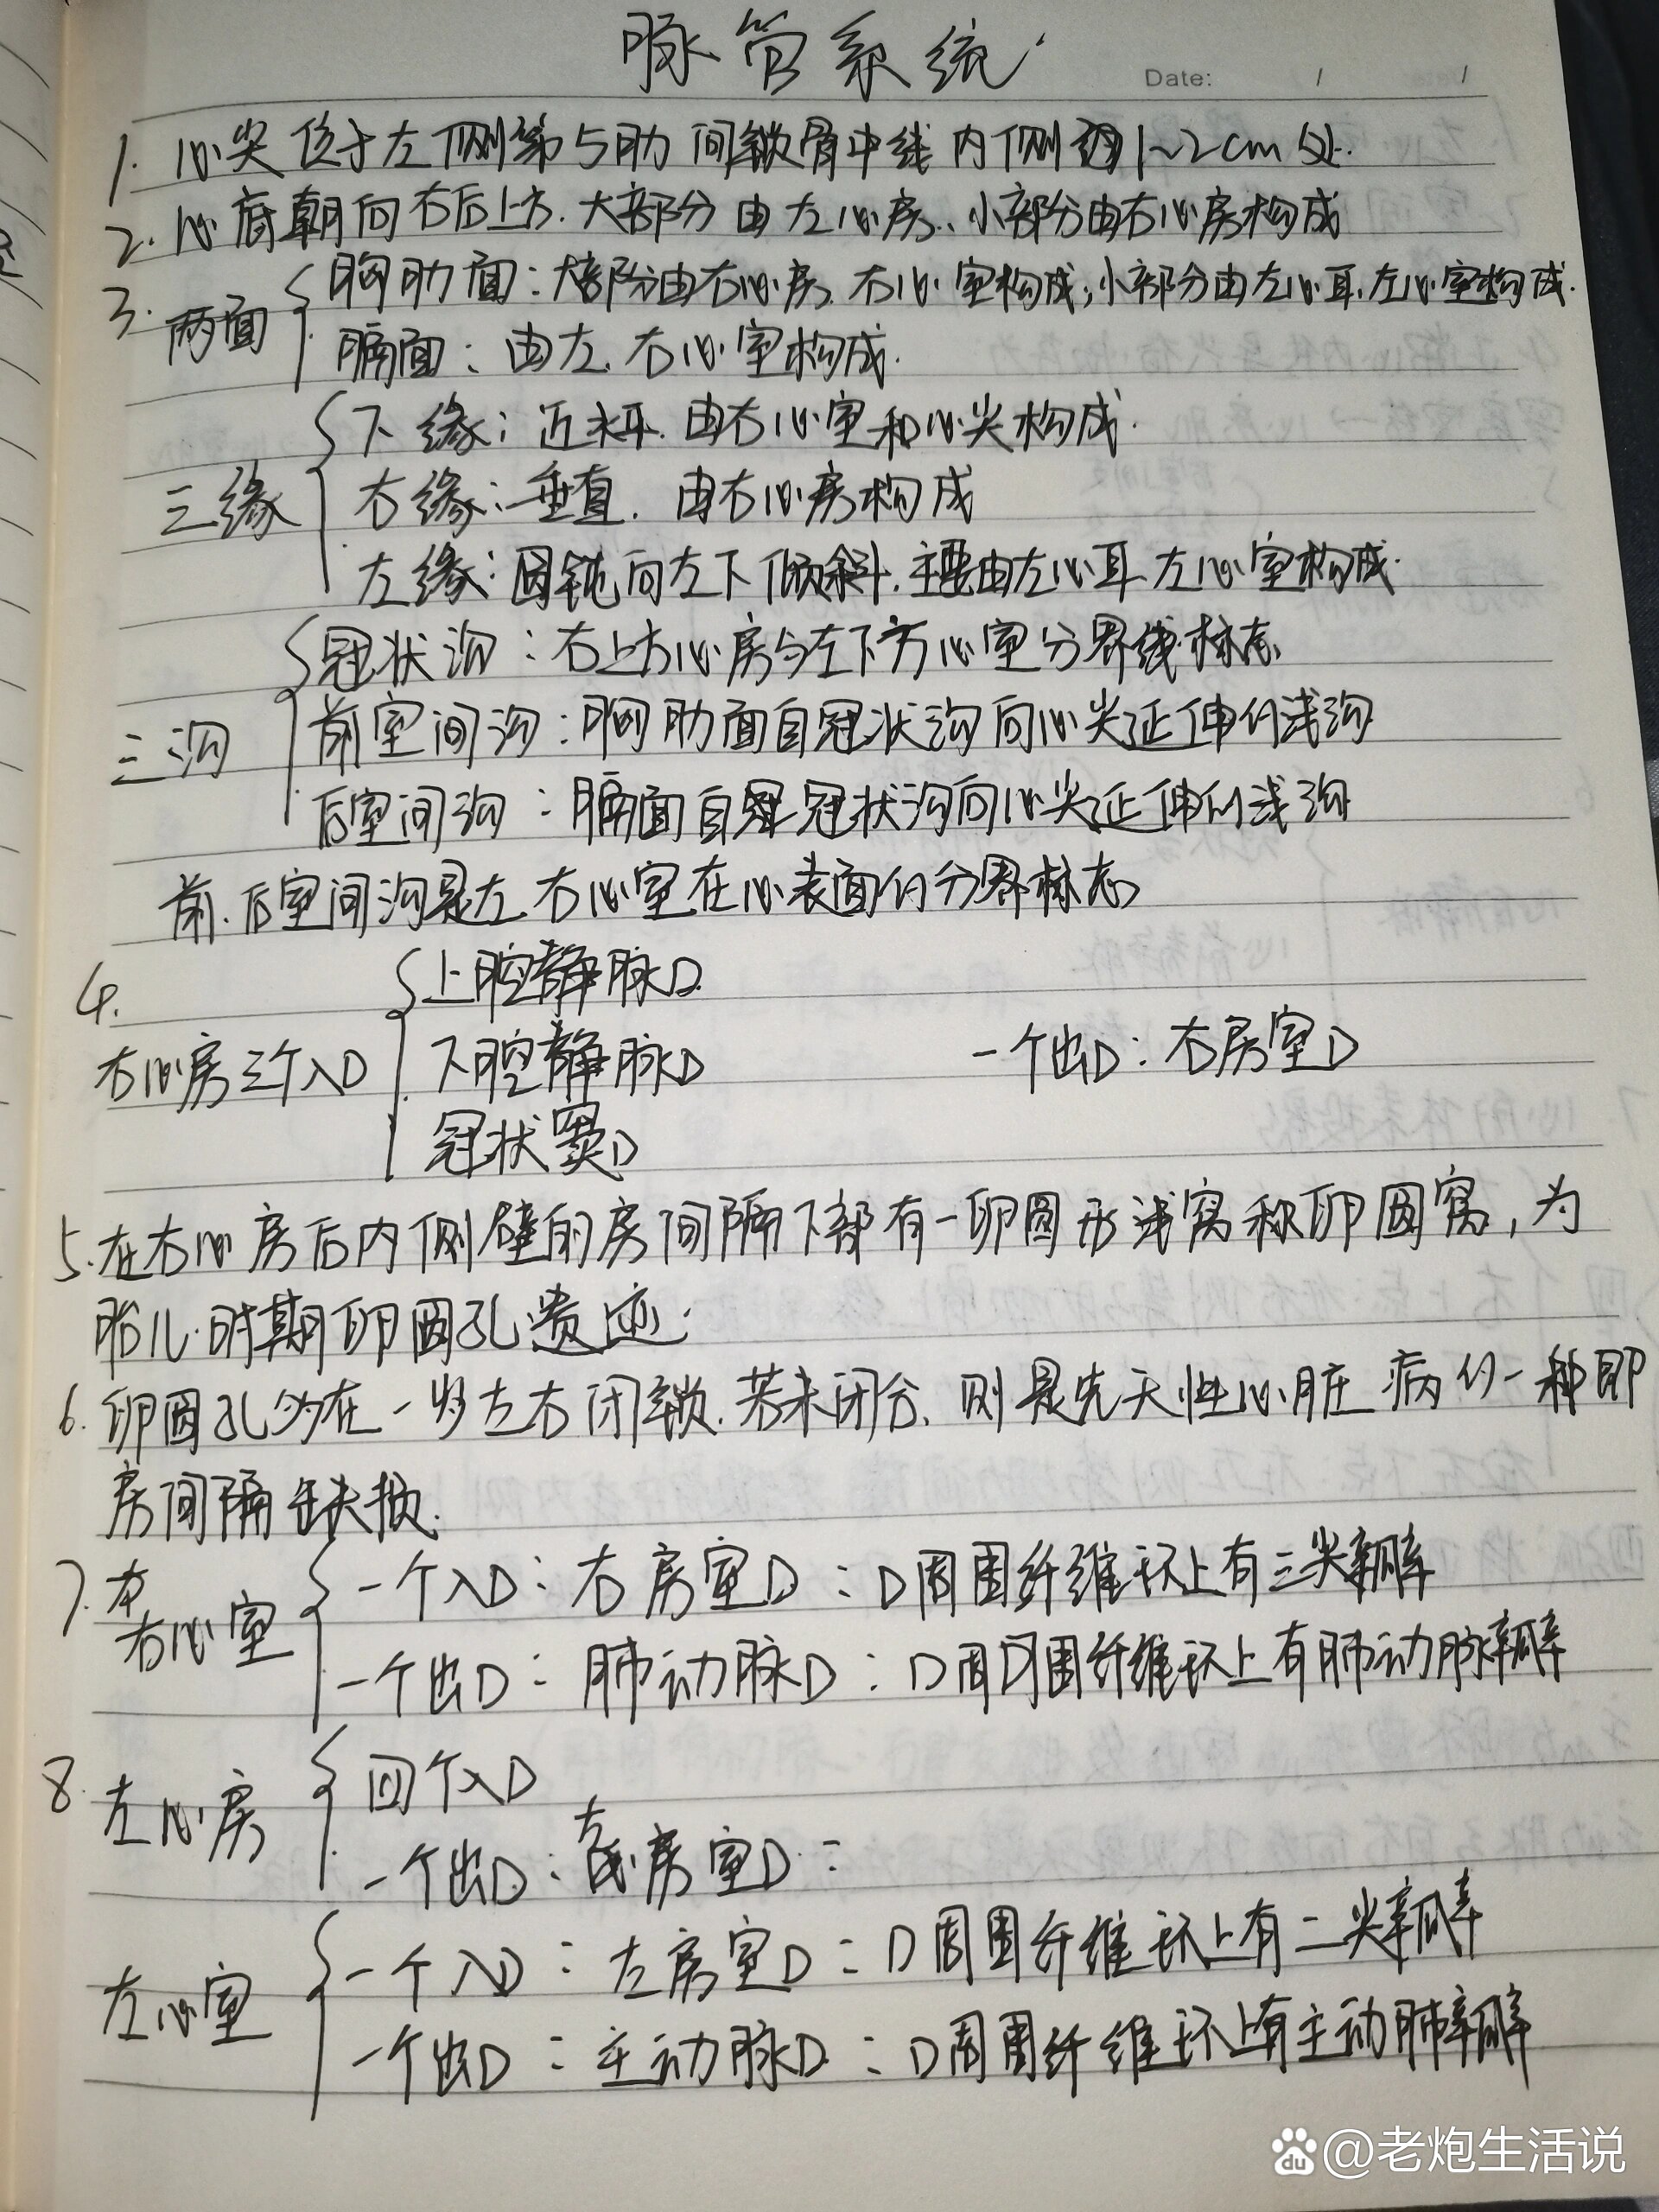 脉管系统
Date: / /
1. 心尖位于左侧第5肋间锁骨中线内侧约1~2cm处.
2. 心底朝向右后上方.大部分由左心房、小部分由右心房构成
3. 两面
胸肋面:大部分由右心房、右心室构成;小部分由左心耳、左心室构成.
膈面:由左、右心室构成.
三缘
下缘:近水平.由右心室和心尖构成.
右缘:垂直.由右心房构成
左缘:圆钝向左下倾斜.主要由左心耳、左心室构成.
三沟
冠状沟:右上方心房与左下方心室分界线标志
前室间沟:胸肋面自冠状沟向心尖延伸的浅沟
后室间沟:膈面自冠状沟向心尖延伸的浅沟
前、后室间沟是左、右心室在心表面的分界标志
4.
右心房三个入口
上腔静脉口
下腔静脉口 一个出口:右房室口
冠状窦口
5.在右心房后内侧壁的房间隔下部有一卵圆形浅窝称卵圆窝,为
胎儿时期卵圆孔遗迹.
6.卵圆孔多在一岁左右闭锁.若未闭合、则是先天性心脏病的一种即
房间隔缺损.
7.右心室
一个入口:右房室口:口周围纤维环上有三尖瓣
一个出口:肺动脉口:口周围纤维环上有肺动脉瓣
8. 左心房
四个入口
一个出口:左房室口:
左心室
一个入口:左房室口:口周围纤维环上有二尖瓣
一个出口:主动脉口:口周围纤维环上有主动肺瓣
du @老炮生活说